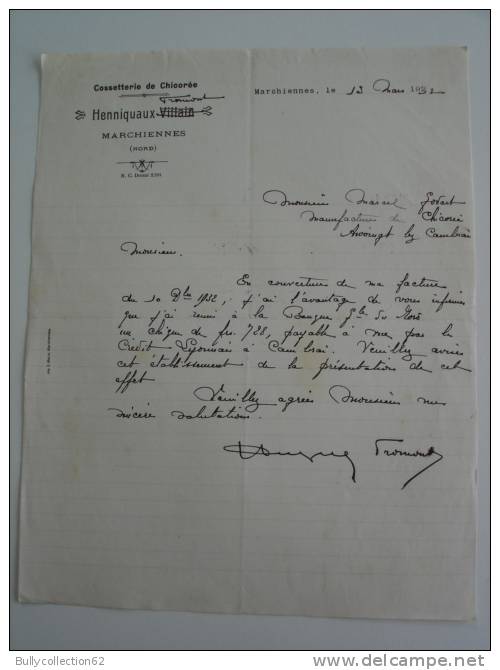 Cossetterie de Chicorée
Fromont
Henniquaux-Villain
MARCHIENNES
(NORD)
R. C. Douai
Marchiennes, le 13 Mars 1932
Monsieur Marcel
Manufacture de Chicorée
Awoingt by Cambrai
Monsieur.
En couverture de ma facture
du 10 Dbre 1932, j'ai l'avantage de vous informer
que j'ai remis à la Banque Gle du Nord
un chèque de frs. 728, payable à vue par le
Crédit Lyonnais à Cambrai. Veuillez aviser
cet établissement de la présentation de cet
effet
Veuillez agréer Monsieur mes
sincère salutations.
Fromont
Bullycollection62
delcampe.net